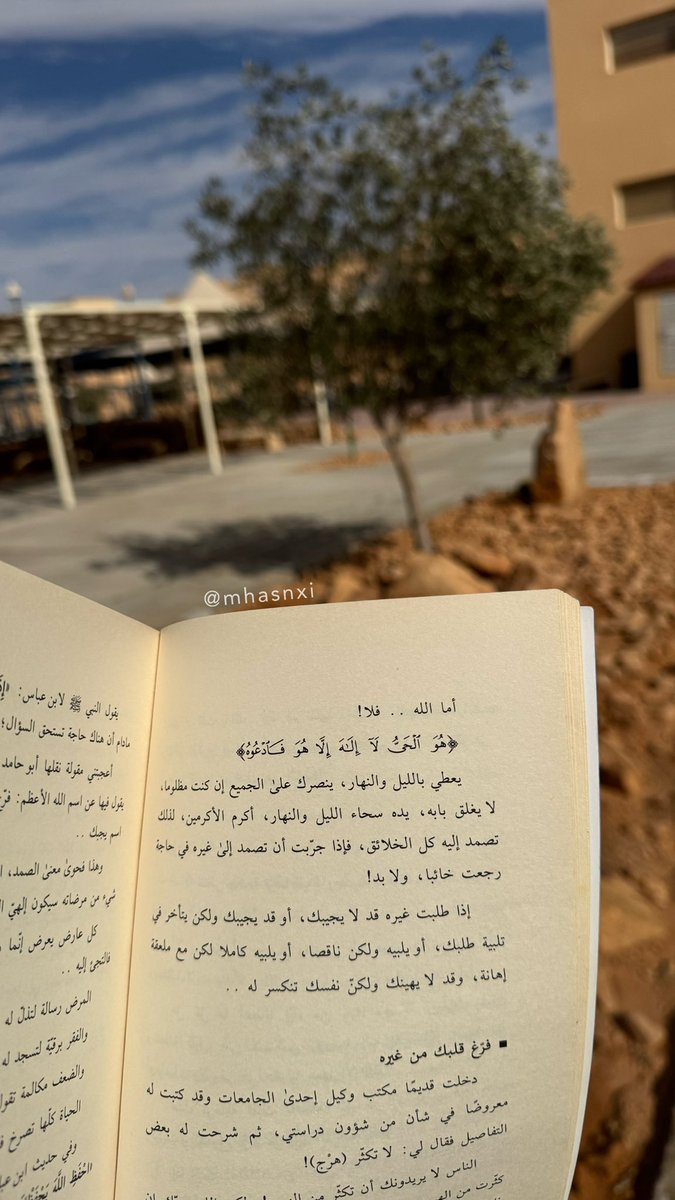 @mhasnxi
يقول النبي ﷺ لابن عباس:
مادام أن هناك حاجة تستحق السؤال؛
أعجبتني مقولة نقلها أبو حامد
يقول فيها عن اسم الله الأعظم: فرّغ
اسم يجبك ..
وهذا فحوىٰ معنىٰ الصمد،
شيء من مرضاته سيكون إلهيّ
كل عارض يعرض إنّما
فالتجئ إليه ..
المرض رسالة لتذلّ له
والفقر برقيّة لتسجد له
والضعف مكالمة تقول
الحياة كلّها تصرخ
وفي حديث ابن
احْفَظِ اللَّهَ يَحْفَظْكَ
أما الله .. فلا!
﴿هُوَ ٱلْحَىُّ لَآ إِلَـٰهَ إِلَّا هُوَ فَٱدْعُوهُ﴾
يعطي بالليل والنهار، ينصرك علىٰ الجميع إن كنت مظلوما،
لا يغلق بابه، يده سحاء الليل والنهار، أكرم الأكرمين، لذلك
تصمد إليه كل الخلائق، فإذا جرّبت أن تصمد إلىٰ غيره في حاجة
رجعت خائبا، ولا بد!
إذا طلبت غيره قد لا يجيبك، أو قد يجيبك ولكن يتأخر في
تلبية طلبك، أو يلبيه ولكن ناقصا، أو يلبيه كاملا لكن مع ملعقة
إهانة، وقد لا يهينك ولكنّ نفسك تنكسر له ..
▪ فرّغ قلبك من غيره
دخلت قديمًا مكتب وكيل إحدىٰ الجامعات وقد كتبت له
معروضًا في شأن من شؤون دراستي، ثم شرحت له بعض
التفاصيل فقال لي: لا تكثّر (هرْج)!
الناس لا يريدونك أن تكثّر من
كثّرت من